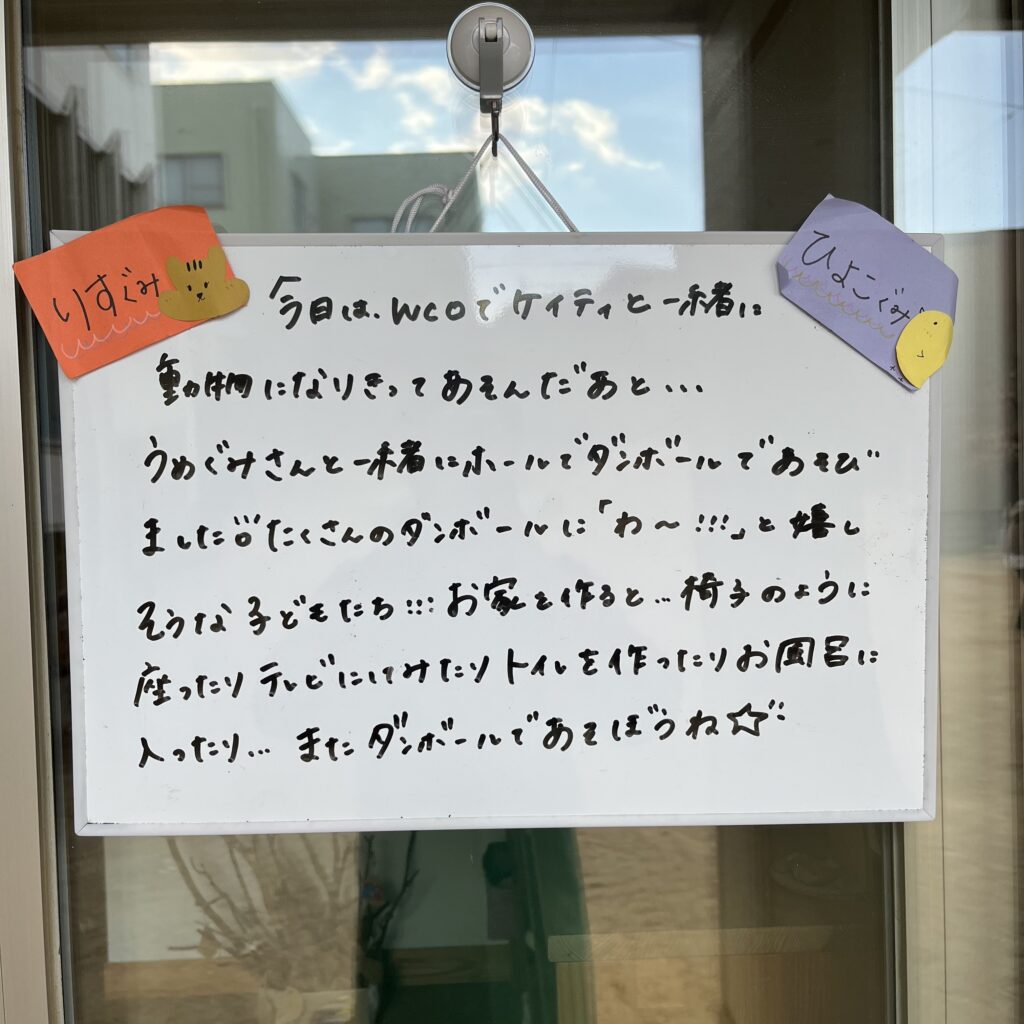 りすぐみ
ひよこぐみ
今日は、WCOでケイティと一緒に
動物になりきってあそんだあと...
うめぐみさんと一緒にホールでダンボールであそび
ました!!たくさんのダンボールに「わ〜!!!」と嬉し
そうな子どもたち!!!お家を作ると...椅子のように
座ったりテレビにしてみたりトイレを作ったりお風呂に
入ったり... またダンボールであそぼうね☆!!